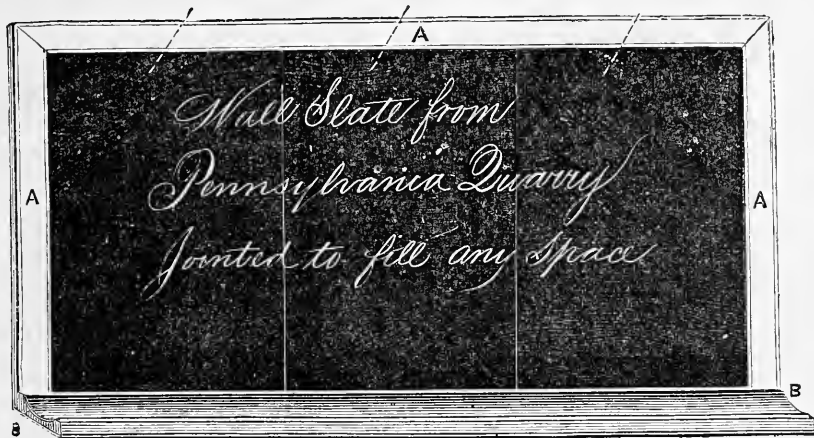 A
Wall Slate from
A Pennsylvania Quarry A
Jointed to fill any space
B
B